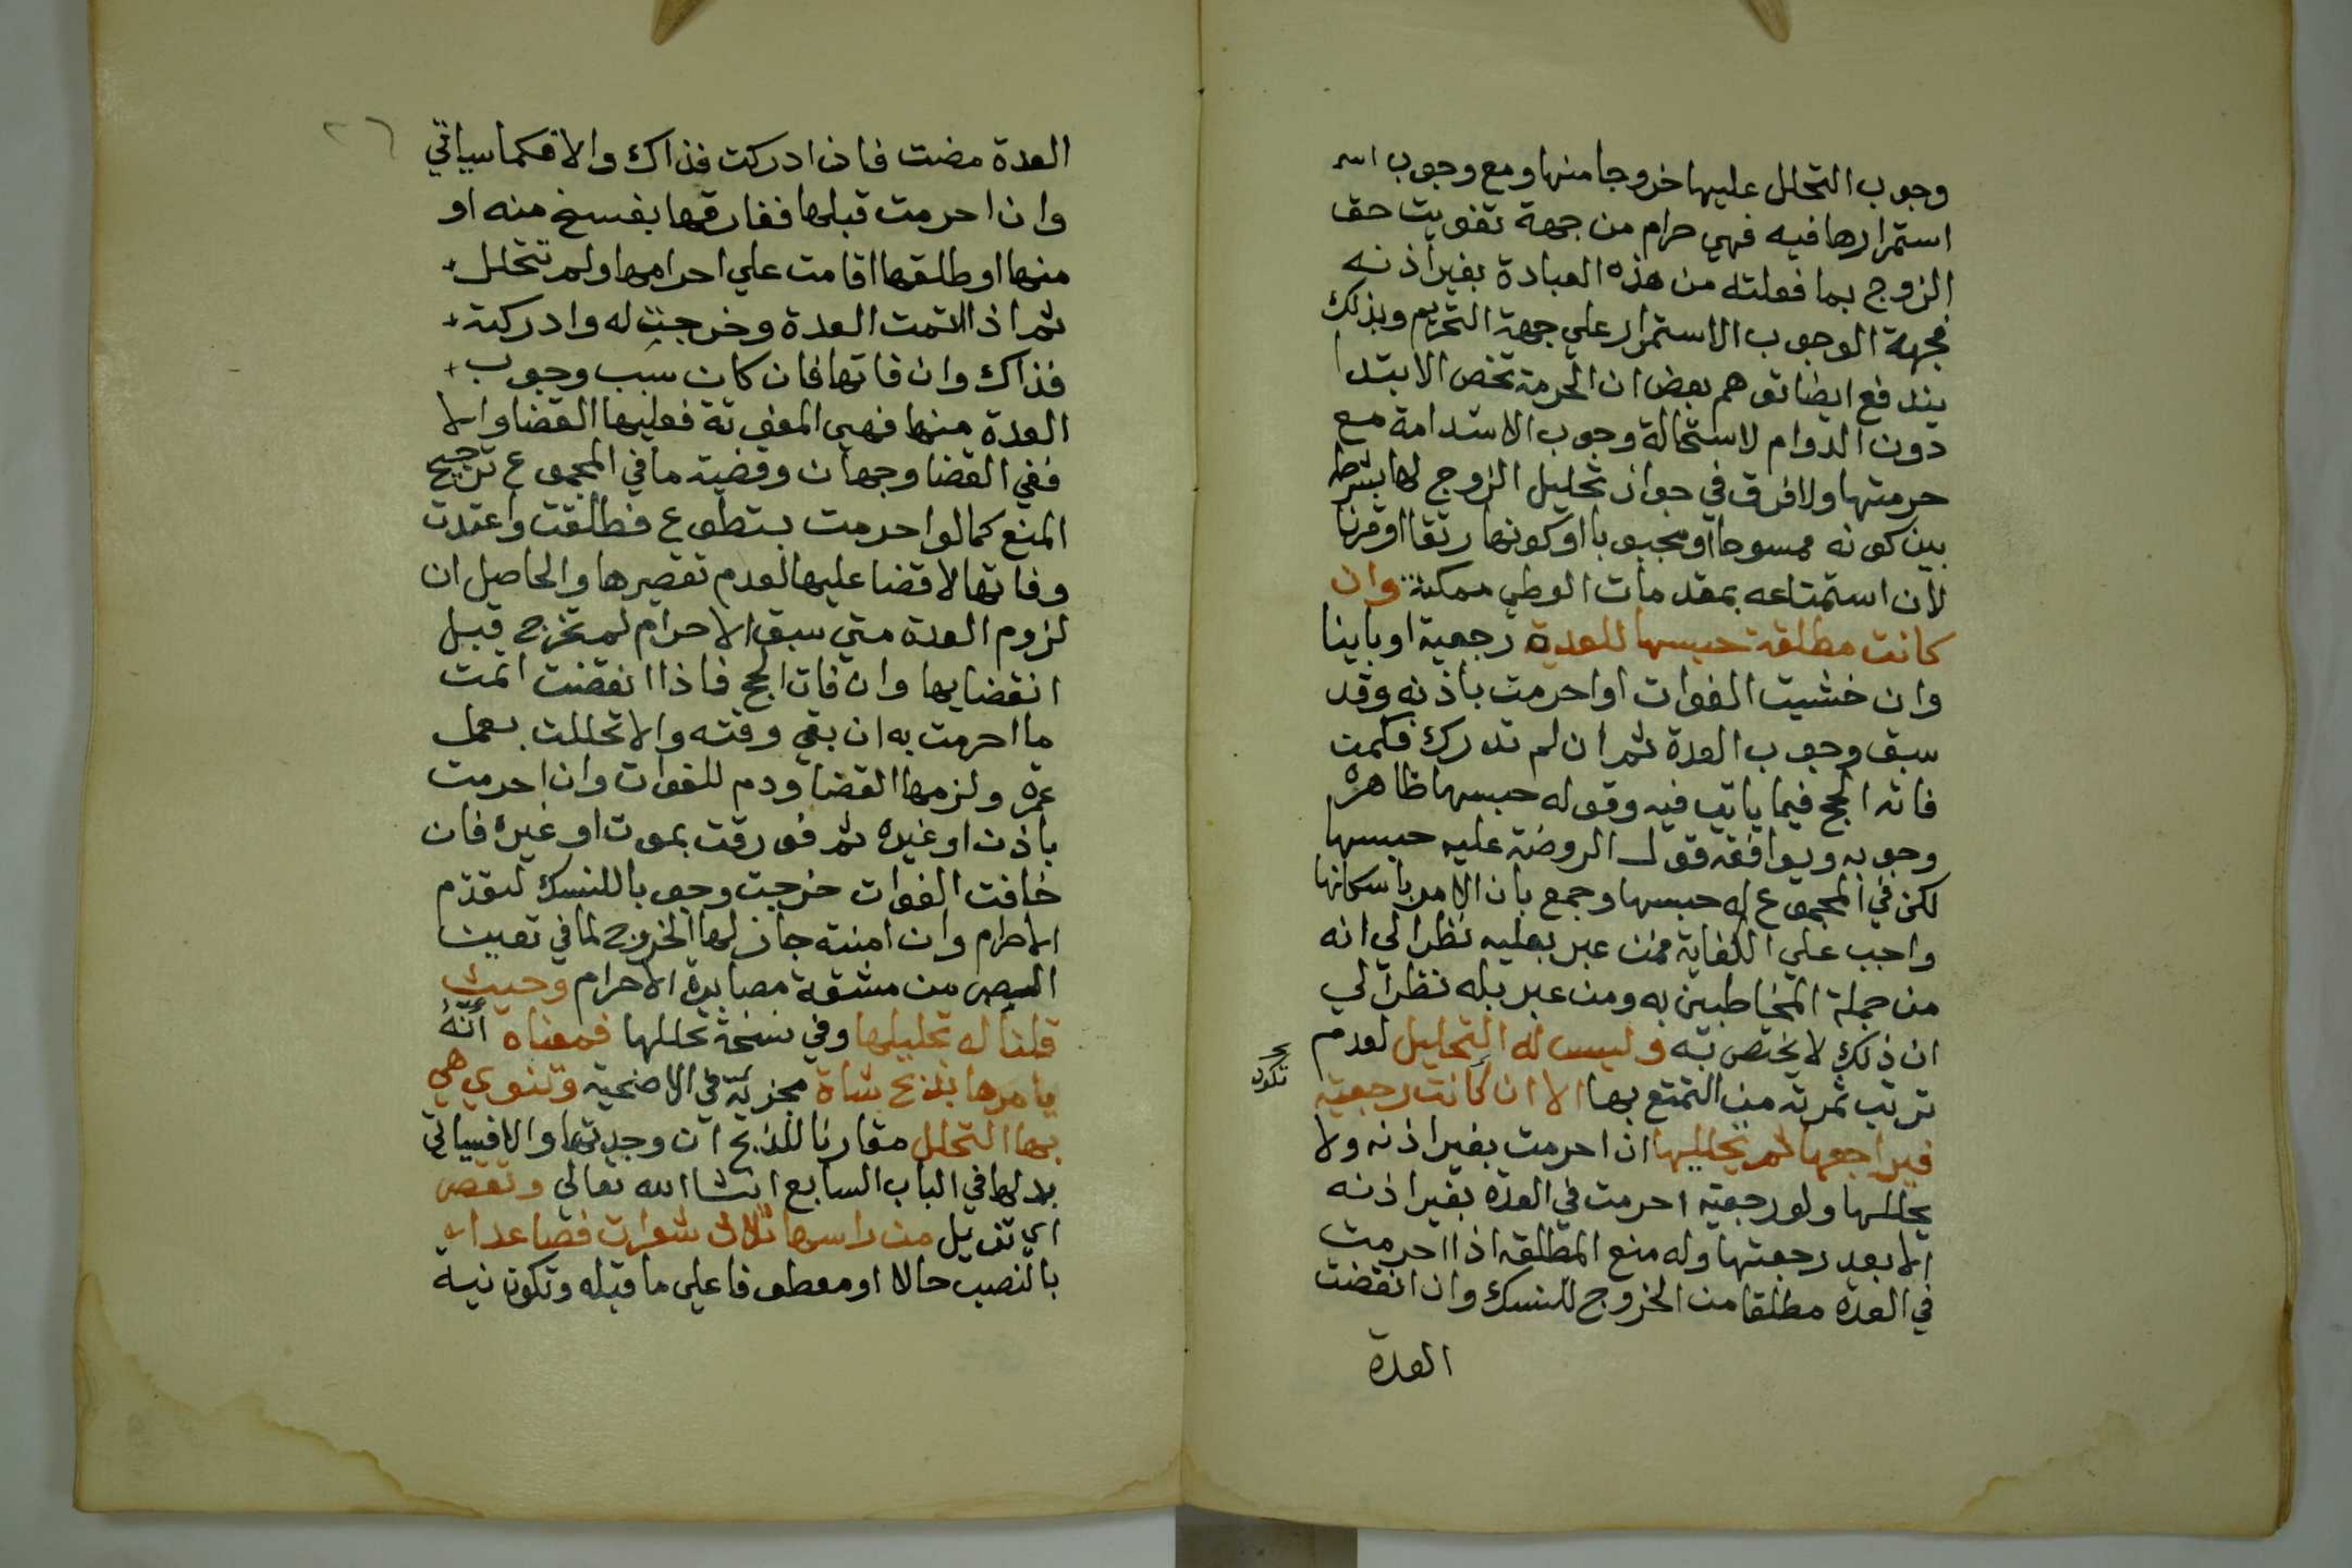 وجوب التحلل عليها خروجا منها ومع وجوب
استمرارها فيه فهي حرام من جهة تفويت حق
الزوج بما فعلته من هذه العبادة بغير اذنه
فجهة الوجوب الاستمرار علي جهة التحريم وبذلك
يندفع ايضا توهم بعض ان الحرمة تخص الابتدا
دون الدوام لاستحالة وجوب الاستدامة مع
حرمتها ولا فرق في جواز تحليل الزوج لها بشرطه
بين كونه ممسوحا او مجبوبا او كونها رتقا او قرنا
لان استمتاعه بمقدمات الوطي ممكنة وان
كانت مطلقة حبسها للعدة رجعية او باينا
وان خشيت الفوات او احرمت باذنه وقد
سبق وجوب العدة ثم ان لم تدرك فكمن
فاته الحج فيما ياتي فيه وقوله حبسها ظاهره
وجوبه ويوافقه قول الروضة عليه حبسها
لكن في المجموع له حبسها وجمع بان الامر باسكانها
واجب علي الكفاية فمن عبر بعليه نظر الي انه
من جملة المخاطبين به ومن عبر بله نظر الي
ان ذلك لا يختص به وليس له التحليل لعدم
ترتب ثمرته من التمتع بها الا ان كانت رجعية
تكون
فيراجعها ثم يحللها ان احرمت بغير اذنه ولا
يحللها ولو رجعية احرمت في العدة بغير اذنه
الا بعد رجعتها وله منع المطلقة اذا احرمت
في العدة مطلقا من الخروج للنسك وان انقضت
العدة
٢٦
العدة مضت فاذا ادركت فذاك والا فكما سياتي
وان احرمت قبلها ففارقها بفسخ منه او
منها او طلقها اقامت علي احرامها ولم تتحلل
ثم اذا اتمت العدة وخرجت له وادركته
فذاك وان فاتها فان كان سبب وجوب
العدة منها فهي المفوتة فعليها القضا والا
ففي القضا وجهان وقضية ما في المجموع ترجيح
المنع كما لو احرمت بتطوع فطلقت واعتدت
وفاتها لا قضا عليها لعدم تقصيرها والحاصل ان
لزوم العدة متي سبق الاحرام لم تخرج قبل
انقضايها وان فات الحج فاذا انقضت اتمت
ما احرمت به ان بقي وقته والا تحللت بعمل
عمرة ولزمها القضا ودم للفوات وان احرمت
باذن او غيره ثم فورقت بموت او غيره فان
خافت الفوات خرجت وجوبا للنسك لتقدم
الاحرام وان امنته جاز لها الخروج لما في تعيين
الصبر من مشقة مصابرة الاحرام وحيث
قلنا له تحليلها وفي نسخة تحللها فمعناه أنّهُ
يامرها بذبح شاة مجزية في الاضحية وتنوي هي
بها التحلل مقارنا للذبح ان وجدتها والا فسياتي
بدلها في الباب السابع انشا الله تعالي وتقص
اي تزيل من راسها ثلاث شعرات فصاعدا
بالنصب حالا او معطوفا علي ما قبله وتكون نية